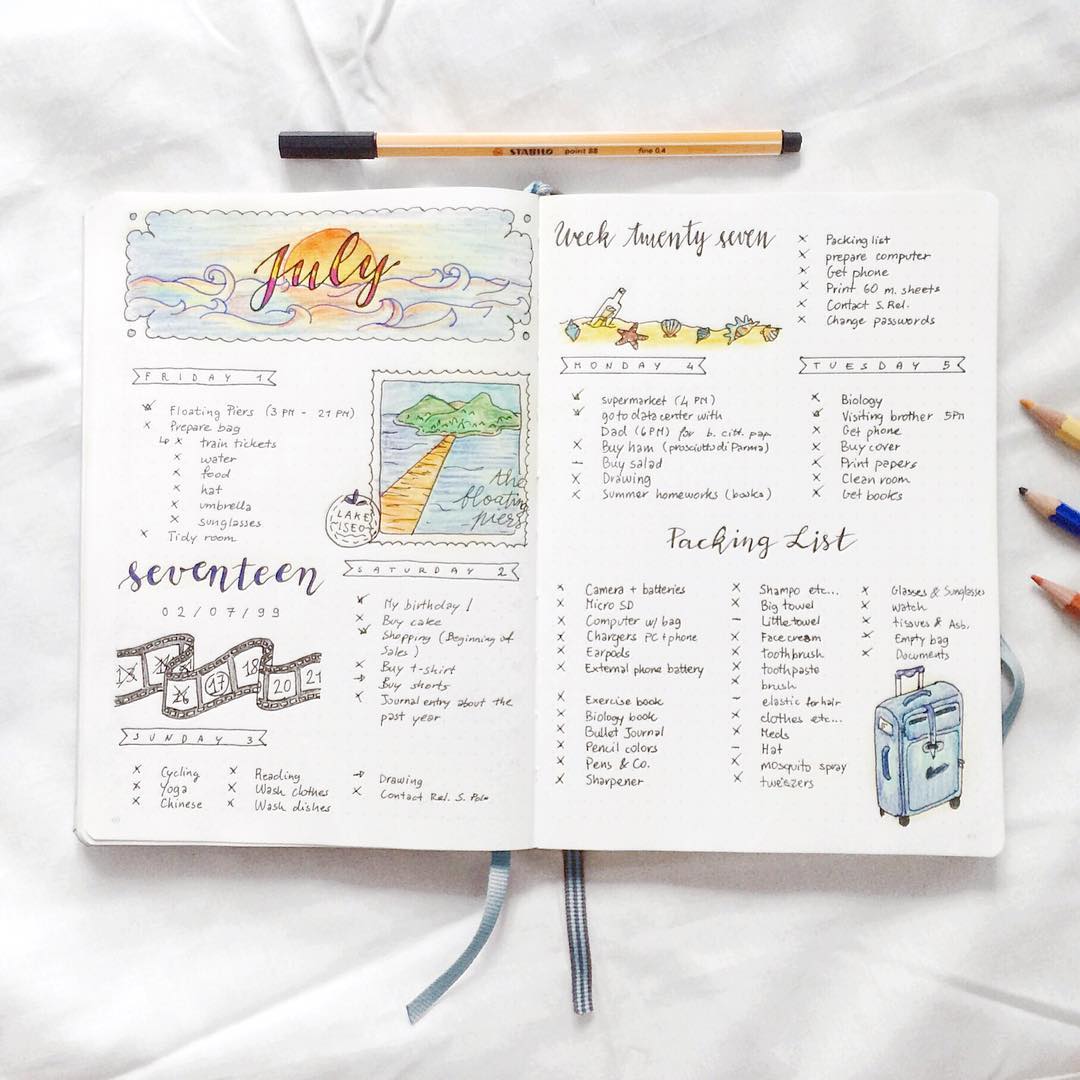 STABILO point 88 fine 0,4
July
FRIDAY 1
Floating Piers (3 PM - 21 PM)
Prepare bag
train tickets
water
food
hat
umbrella
sunglasses
Tidy room
LAKE
ISEO
the
floating
piers
seventeen
02/07/99
15
16
17
18
20
21
SATURDAY 2
My birthday!
Buy cake
Shopping (Beginning of
Sales)
Buy t-shirt
Buy shorts
Journal entry about the
past year
SUNDAY 3
Cycling
Yoga
Chinese
Reading
Wash clothes
Wash dishes
Drawing
Contact Rel. S. Polo
Week twenty seven
Packing list
prepare computer
Get phone
Print 60 m. sheets
Contact S. Rel.
Change passwords
MONDAY 4
supermarket (4 PM)
go to data center with
Dad (6PM) for b. citt. pap.
Buy ham (prosciutto di Parma)
Buy salad
Drawing
Summer homeworks (books)
TUESDAY 5
Biology
Visiting brother 5PM
Get phone
Buy cover
Print papers
Clean room
Get books
Packing List
Camera + batteries
Micro SD
Computer w/ bag
Chargers PC + phone
Earpods
External phone battery
Exercise book
Biology book
Bullet Journal
Pencil colors
Pens & Co.
Sharpener
Shampo etc...
Big towel
Little towel
Face cream
toothbrush
toothpaste
brush
elastic for hair
clothes etc...
Meds
Hat
mosquito spray
tweezers
Glasses & Sunglasses
watch
tissues & Asb.
Empty bag
Documents